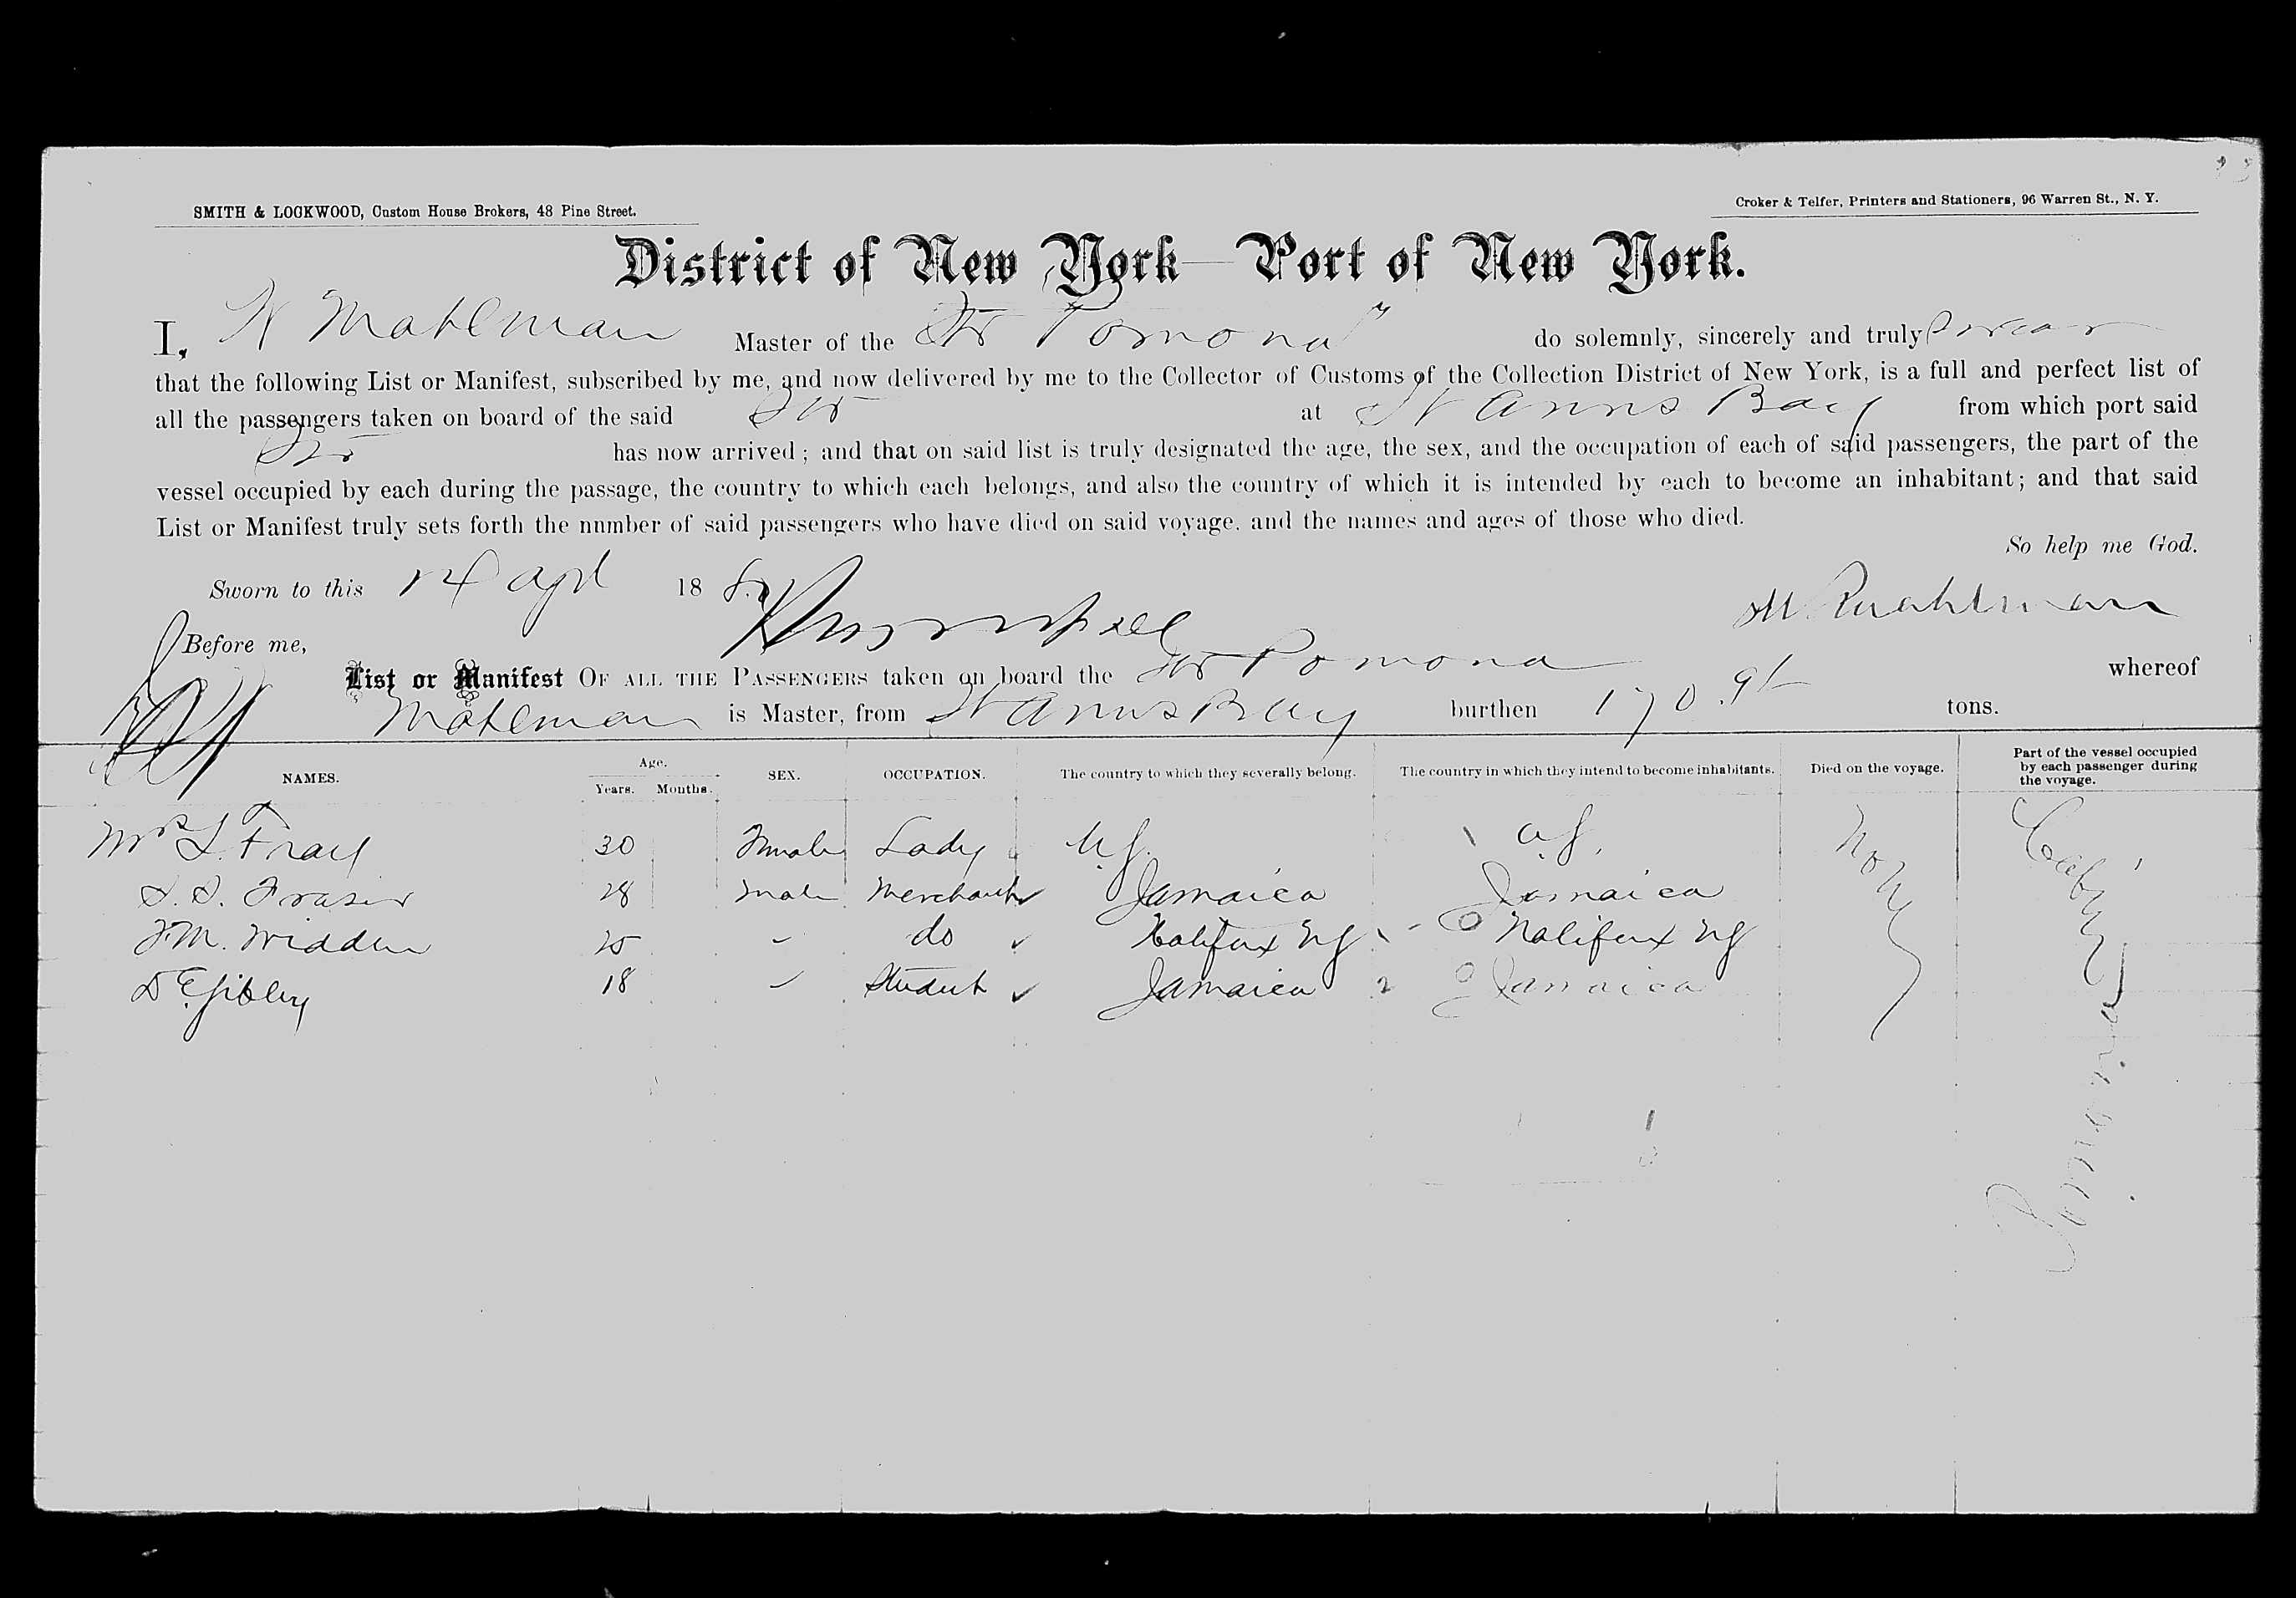 SMITH & LOCKWOOD, Custom House Brokers, 48 Pine Street.
Croker & Telfer, Printers and Stationers, 96 Warren St., N. Y.
District of New York—Port of New York.
I, Mahlman Master of the Str Pomona" do solemnly, sincerely and truly swear
that the following List or Manifest, subscribed by me, and now delivered by me to the Collector of Customs of the Collection District of New York, is a full and perfect list of
all the passengers taken on board of the said Str at St Anns Bay from which port said
Str has now arrived; and that on said list is truly designated the age, the sex, and the occupation of each of said passengers, the part of the
vessel occupied by each during the passage, the country to which each belongs, and also the country of which it is intended by each to become an inhabitant; and that said
List or Manifest truly sets forth the number of said passengers who have died on said voyage, and the names and ages of those who died.
So help me God.
Sworn to this 14 Apl 18
Before me,
List or Manifest OF ALL THE PASSENGERS taken on board the Str Pomona whereof
Mahlman is Master, from St Anns Bay burthen 170 tons.
NAMES. Age. Years. Months. SEX. OCCUPATION. The country to which they severally belong. The country in which they intend to become inhabitants. Died on the voyage. Part of the vessel occupied by each passenger during the voyage.
30 Female Lady None Cabin
S. S. Fraser 28 male Merchant Jamaica Jamaica
25 do Halifax Halifax
18 Student Jamaica Jamaica